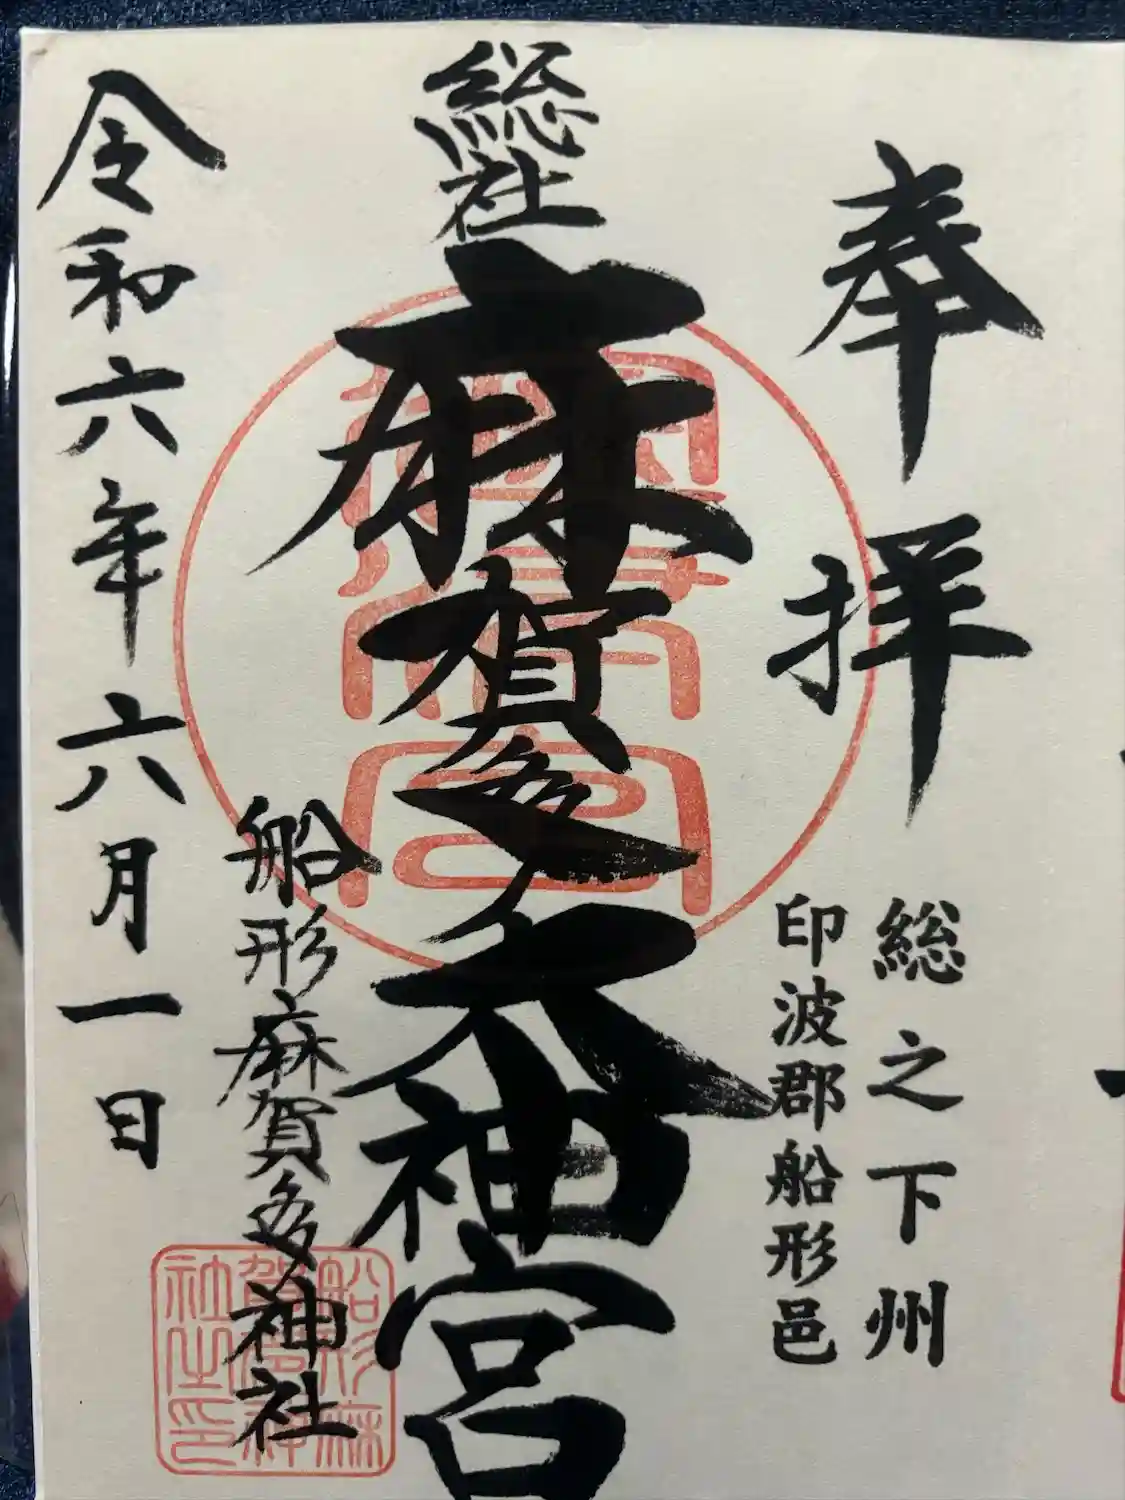 奉拝
総之下州
印波郡船形邑
総社
麻賀多大神宮
船形麻賀多神社
令和六年六月一日
船形麻
賀多神
社之印